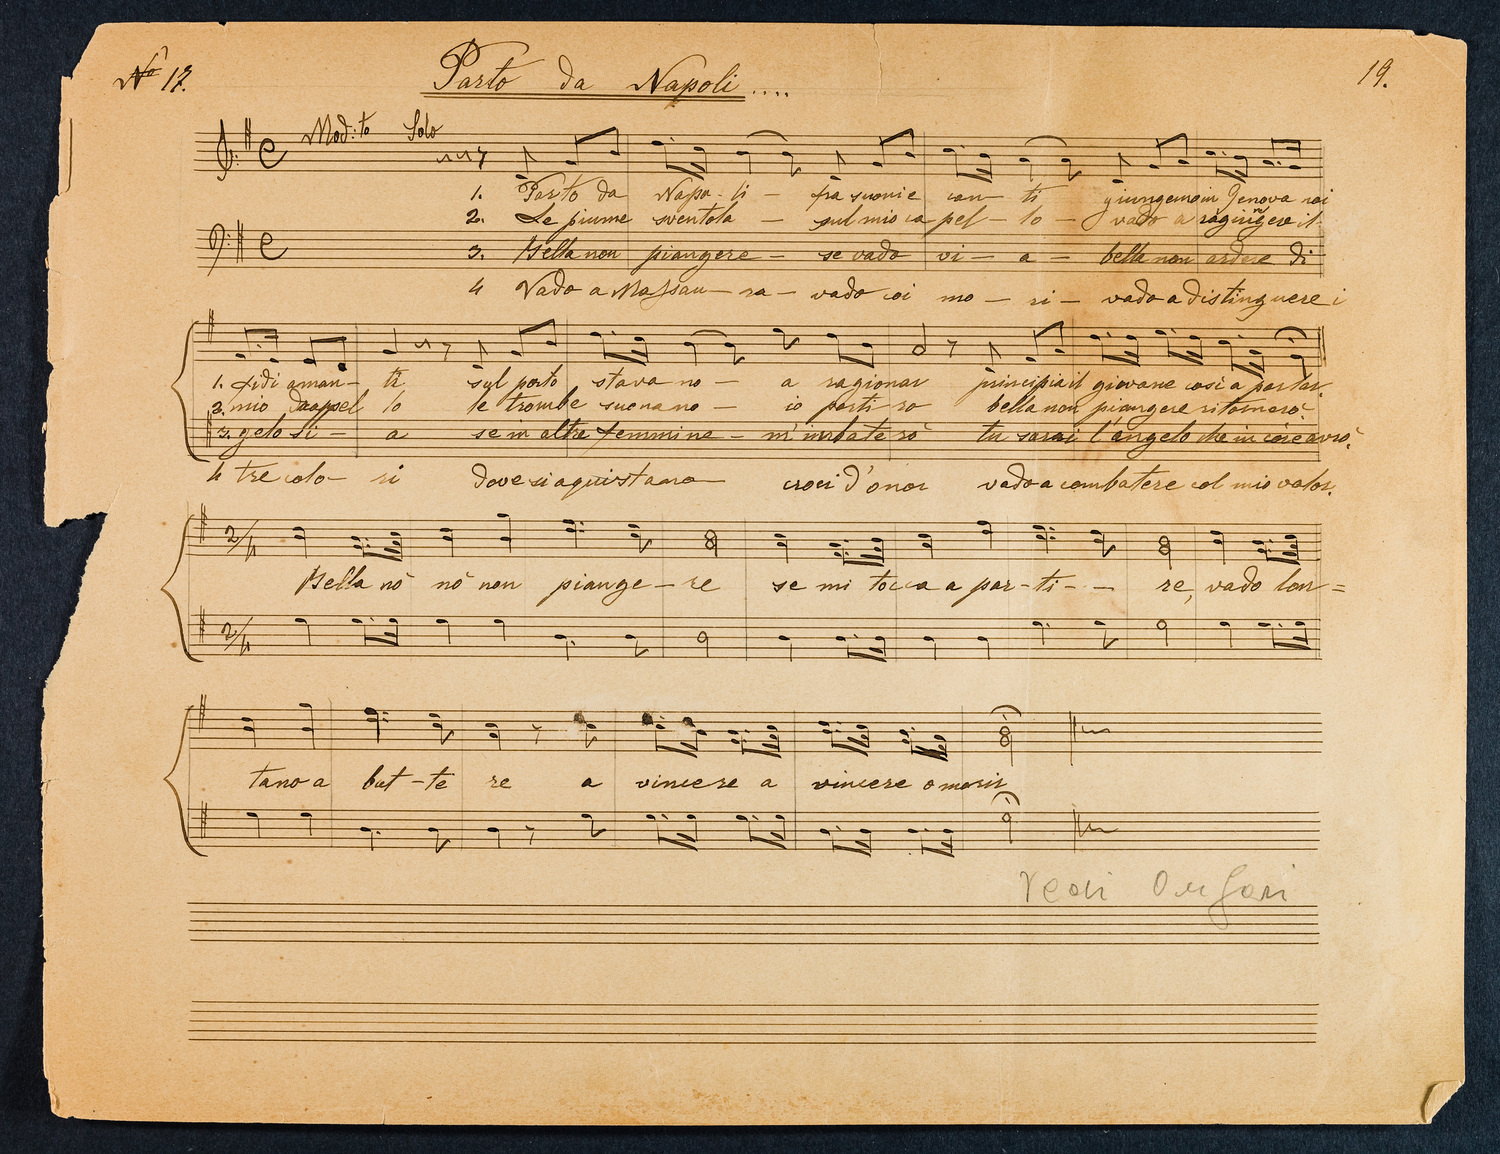 No 17.
Parto da Napoli ....
19.
Mod:to Solo
1. Parto da Napo-li - fra suoni e can-ti giungemo in Genova noi
2. Le piume sventola - sul mio capel-lo - vado a ragiungere il
3. Bella non piangere - se vado vi-a - bella non ardere di
4 Vado a Massau-ra - vado coi mo-ri - vado a distinguere i
1. fidi aman-ti sul porto stavano - a ragionar principia il giovane cosi a parlar.
2. mio drappel lo le trombe suonano - io partirò bella non piangere ritornerò.
3. gelosi-a se in altre femmine - m'imbaterò tu sarai l'angelo che in core avrò.
4 tre colo-ri dove si aquistano croci d'onor vado a combatere col mio valor.
Bella nò nò non piange-re se mi tocca a par-ti-- re, vado lon=
tano a bat-te re a vincere a vincere o morir
Vedi Ongari